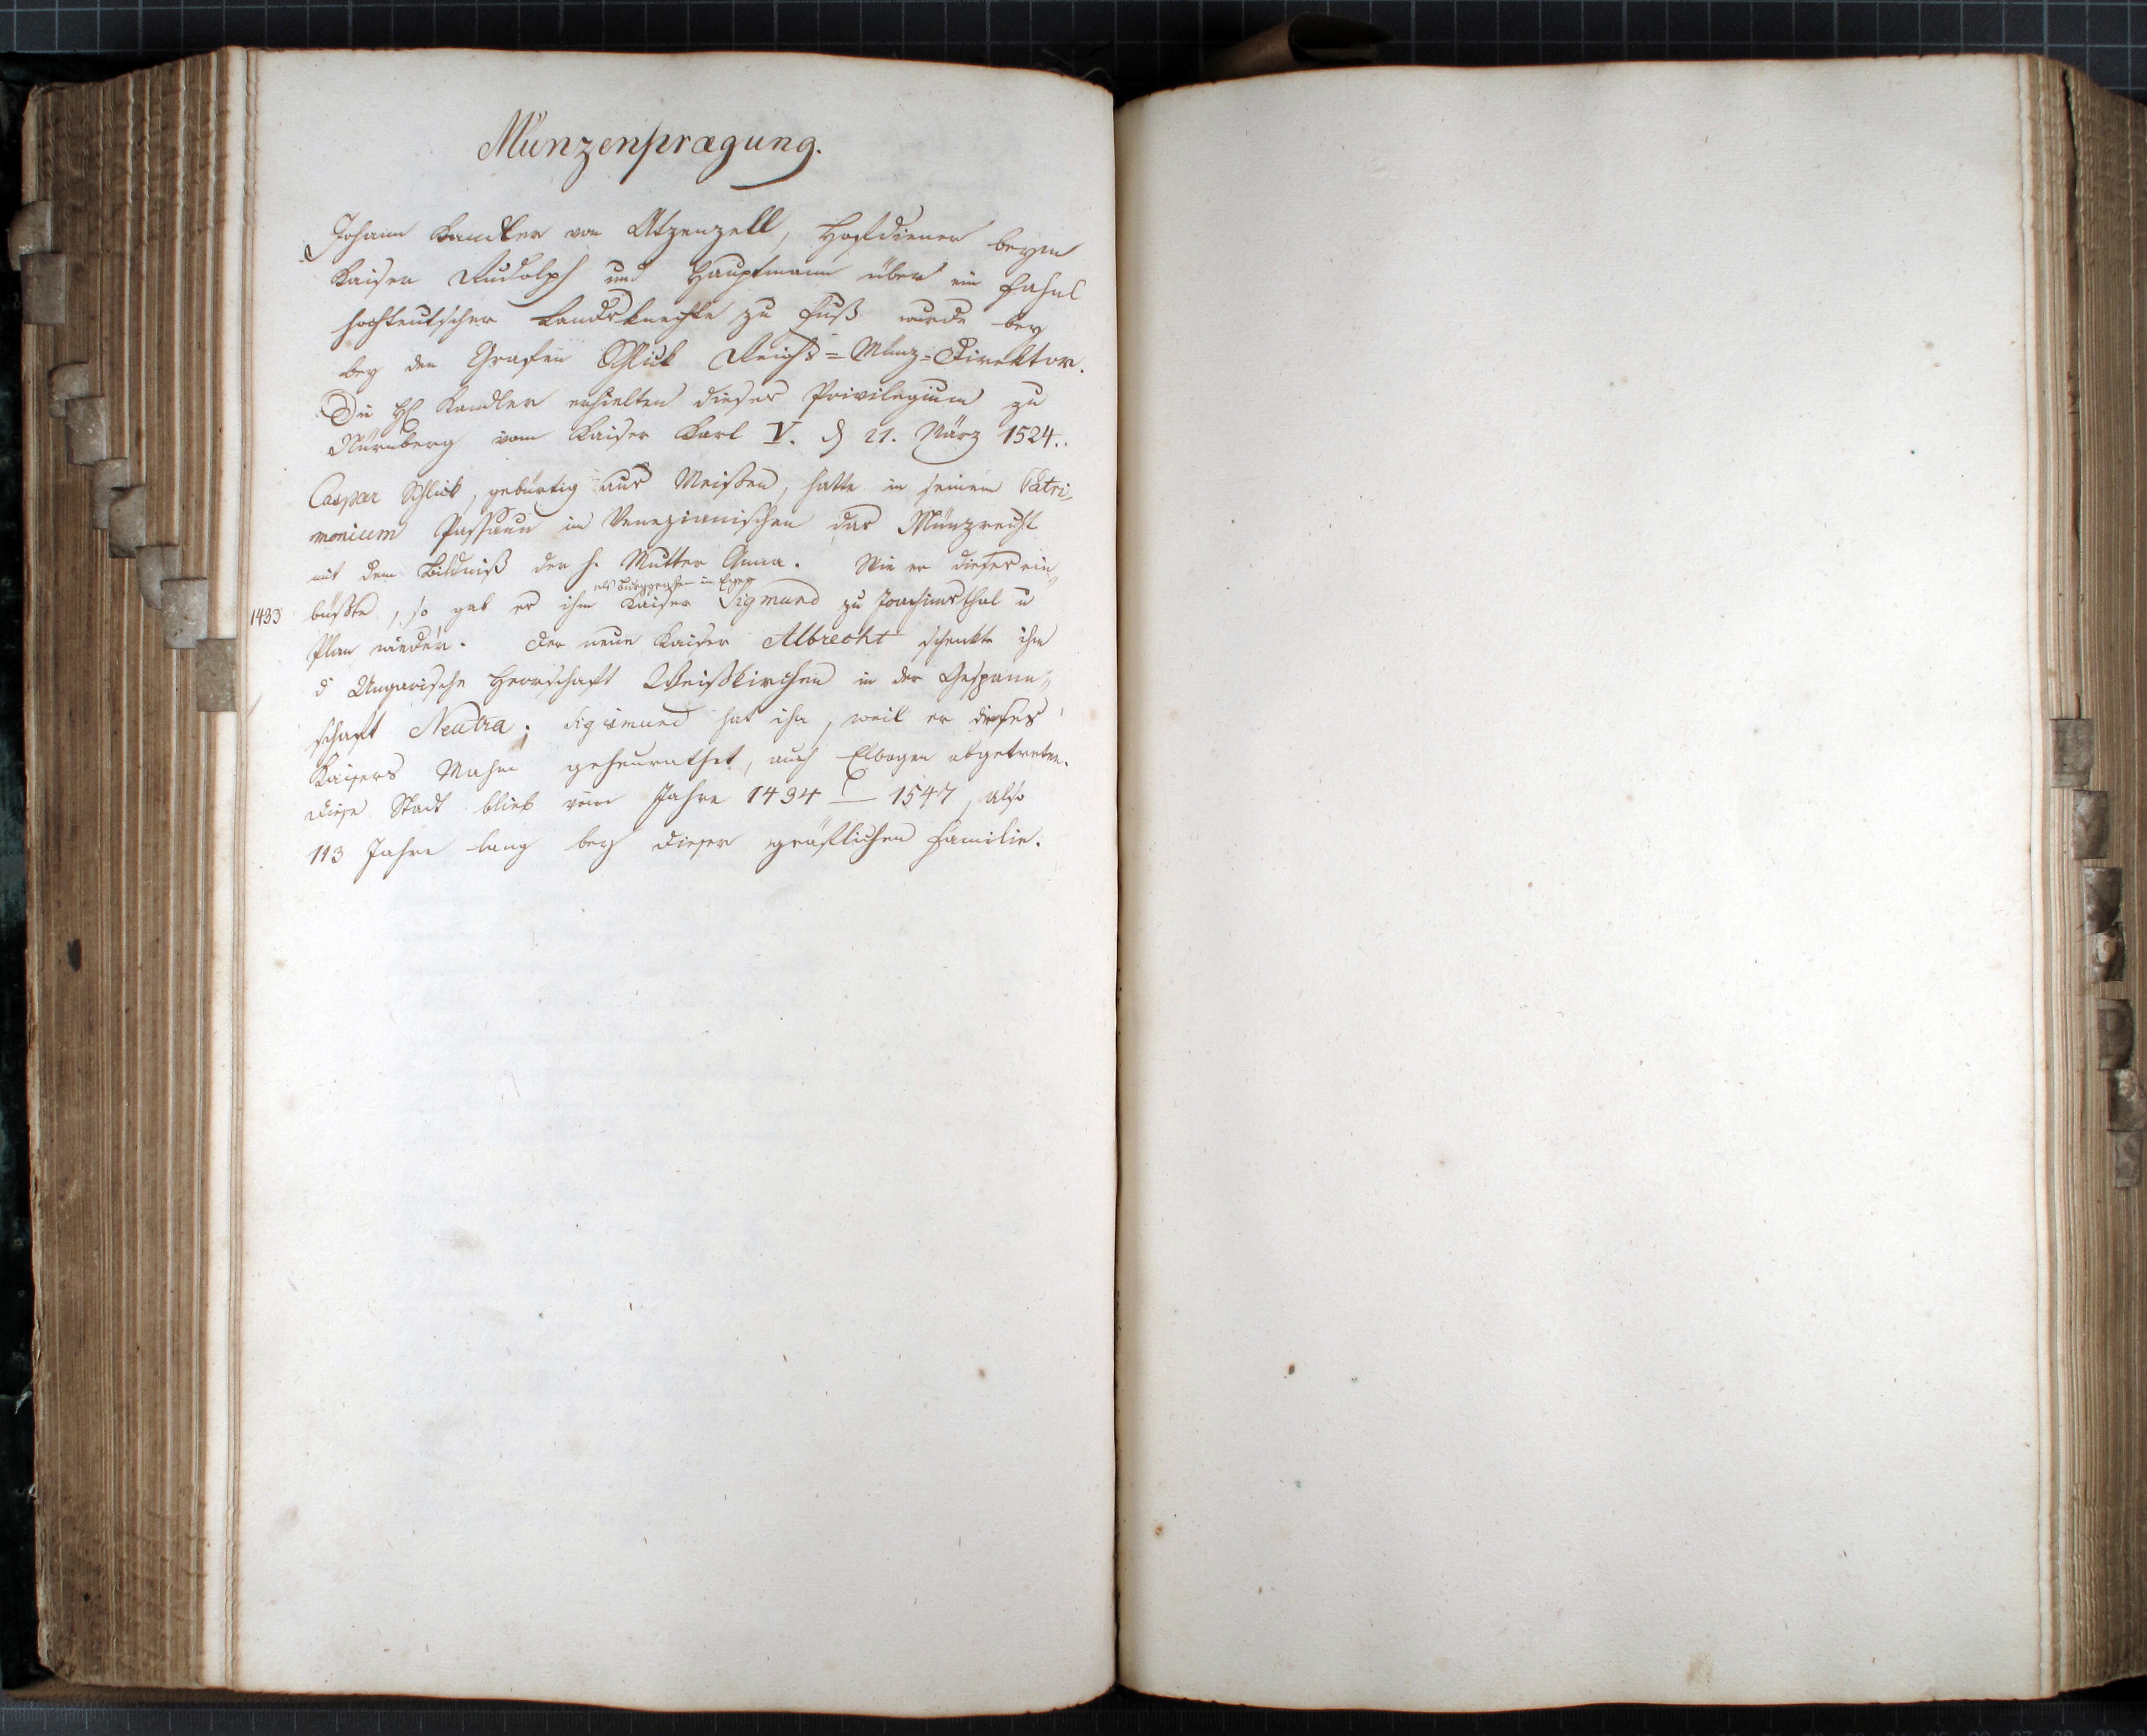 Münzenprægung.
Johann Kandler von Atzenzell, Hofdiener beym
Kaiser Rudolph und Hauptmann über ein Fahnl
hochteutscher Landsknechte zu Fuß wurde bey
bey den Grafen Schlick Reichs=Münz=Direktor.
Die Kandler erhielten dieses Privilegium zu
Nürnberg vom Kaiser Karl V. d 21. März 1524.
Caspar Schlick, gebürtig aus Meißen, hatte in seinem Patri„
monium Passaun im Venezianischen das Münzrecht
mit dem Bildniß der h. Mutter Anna. Wie er dieses ein„
als Burggrafen in Eger
1433 büßte, so gab es ihm Kaiser Sigmund zu Joachimsthal u
Plan wieder. Der neue Kaiser Albrecht schenkte ihm
d Ungarische Herrschaft Weißkirchen in der Gespann„
schaft Neutra; Sigismund hat ihm, weil er dieses
Kaisers Mahm geheurathet, auch Elbogen abgetreten.
Diese Stadt blieb vom Jahre 1434 — 1547, also
113 Jahre lang bey dieser gräflichen Familie.